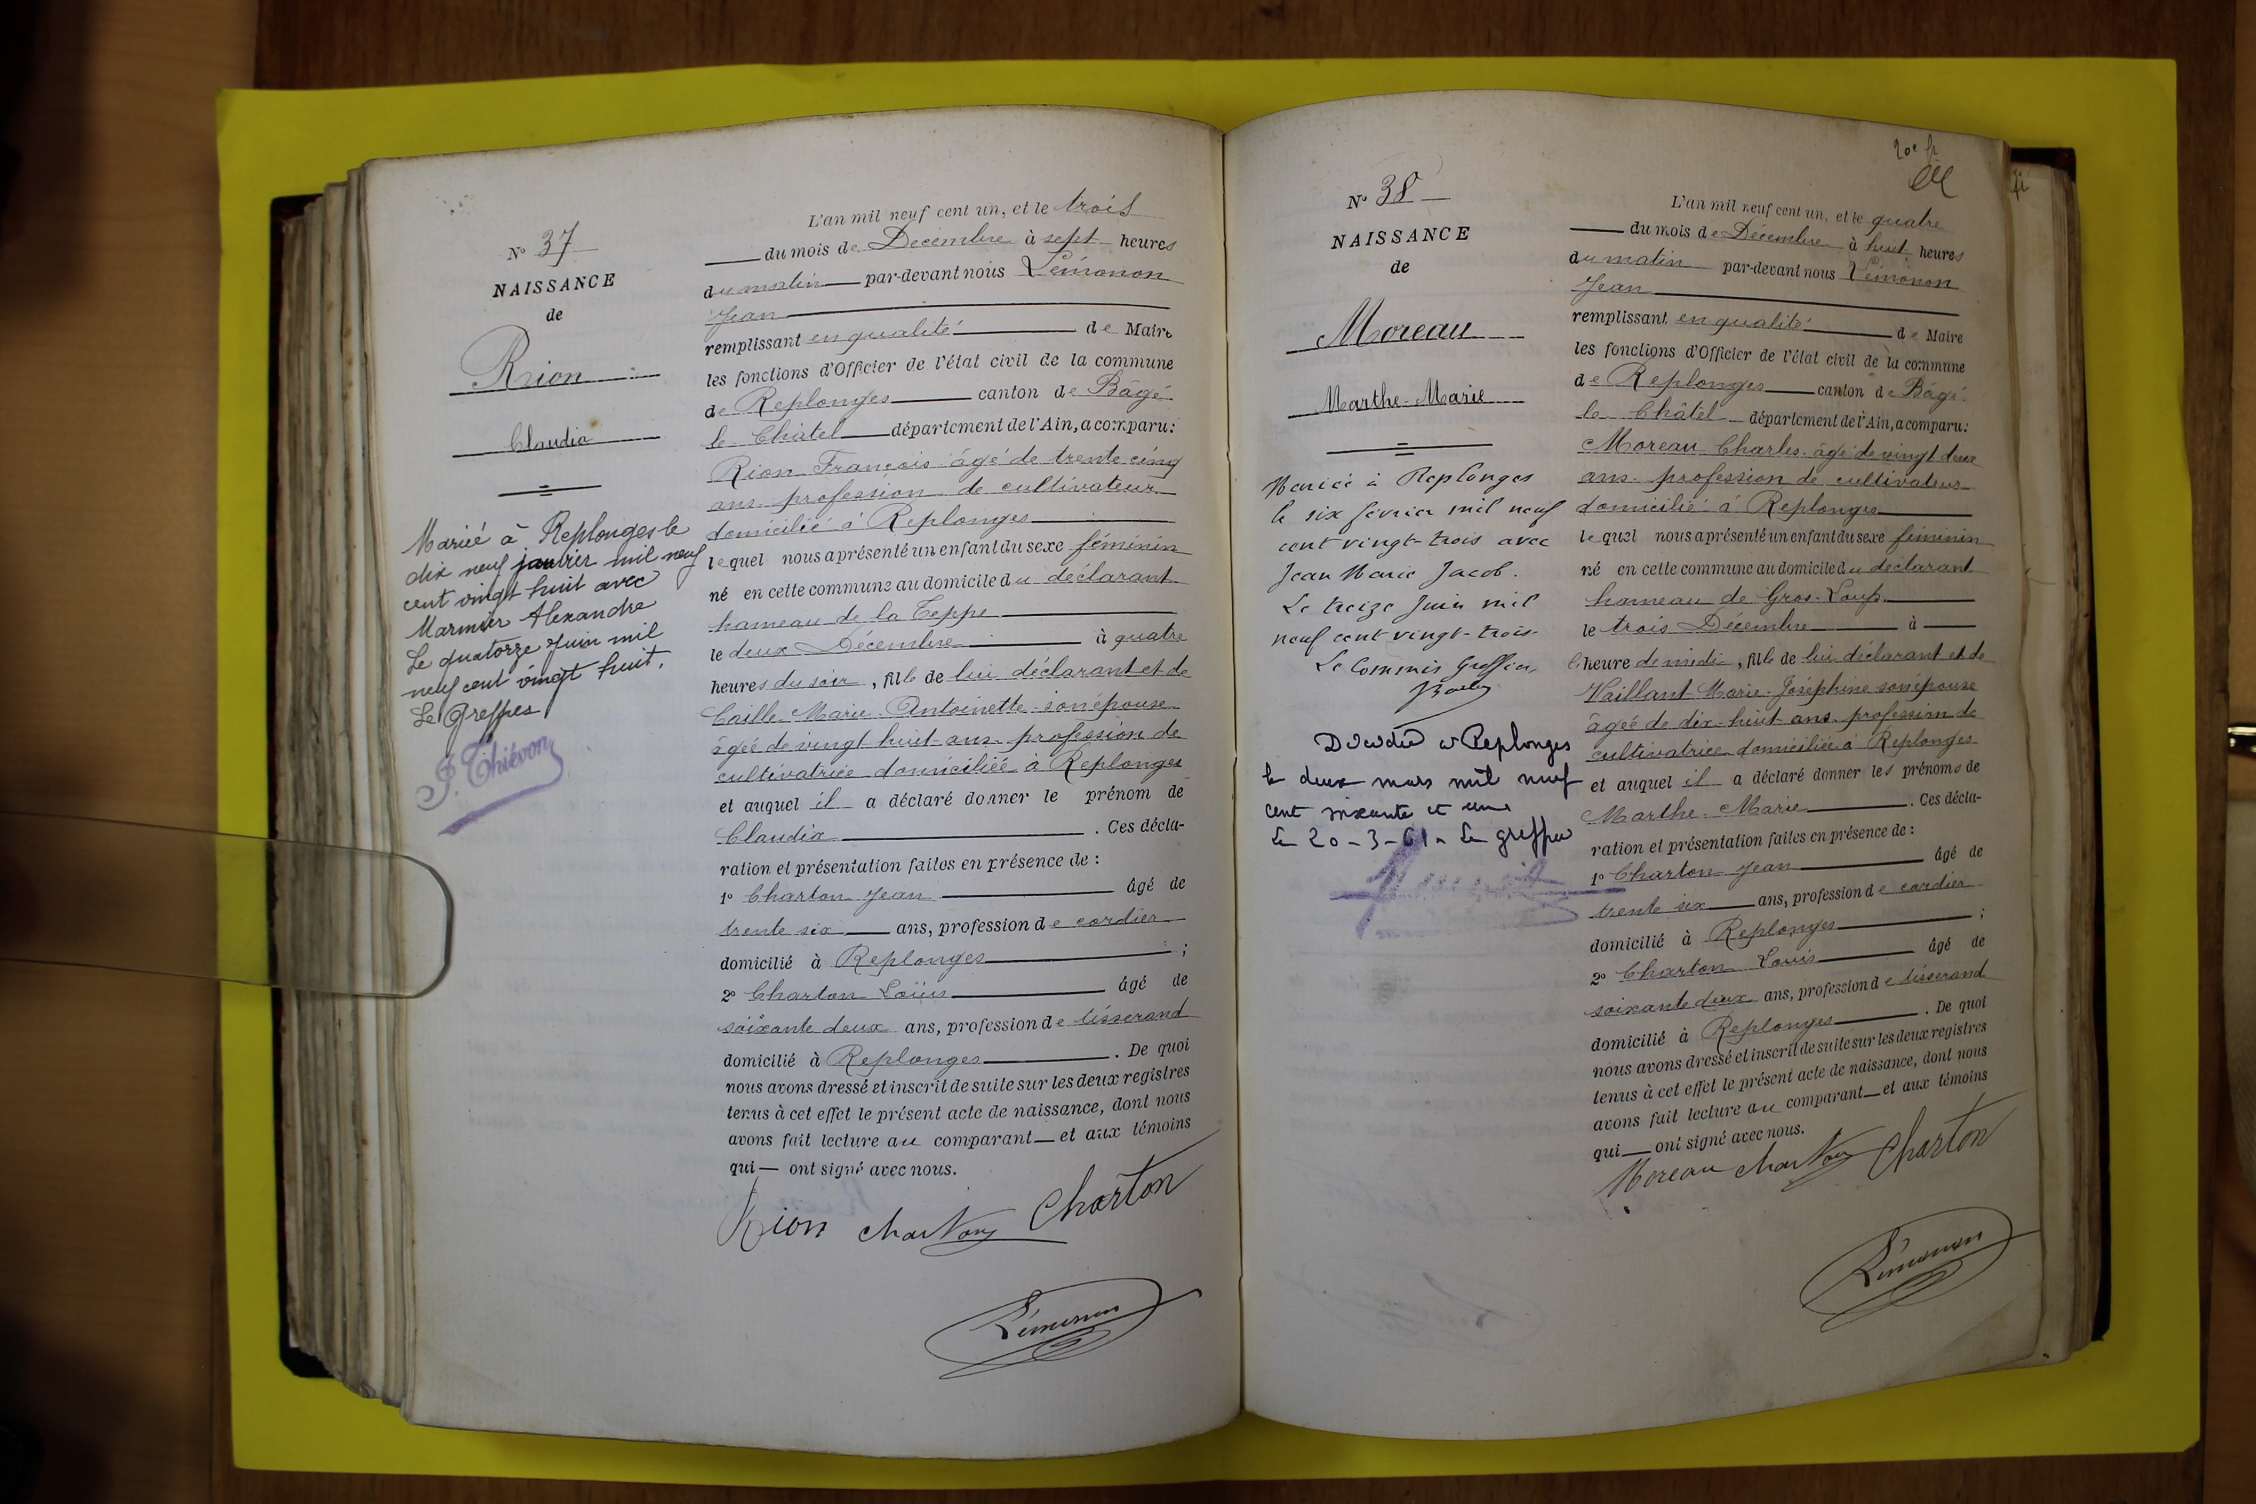 N° 37
NAISSANCE
de
Rion
Claudia
Mariée à Replonges le
dix neuf janvier mil neuf
cent vingt huit avec
Marmier Alexandre
Le quatorze Juin mil
neuf cent vingt huit.
Le Greffier
J. Thiévon
L'an mil neuf cent un, et le trois
du mois de Décembre à sept heures
du matin par-devant nous Lémonon
Jean
remplissant en qualité de Maire
les fonctions d'Officier de l'état civil de la commune
de Replonges canton de Bâgé
le Châtel département de l'Ain, a comparu:
Rion François âgé de trente cinq
ans profession de cultivateur
domicilié à Replonges
lequel nous a présenté un enfant du sexe féminin
né en cette commune au domicile du déclarant
hameau de la Teppe
le deux Décembre à quatre
heures du soir, fille de lui déclarant et de
Caille Marie Antoinette son épouse
âgée de vingt huit ans profession de
cultivatrice domiciliée à Replonges
et auquel il a déclaré donner le prénom de
Claudia. Ces décla-
ration et présentation faites en présence de:
1° Charton Jean âgé de
trente six ans, profession de cordier
domicilié à Replonges;
2° Charton Louis âgé de
soixante deux ans, profession de tisserand
domicilié à Replonges. De quoi
nous avons dressé et inscrit de suite sur les deux registres
tenus à cet effet le présent acte de naissance, dont nous
avons fait lecture au comparant et aux témoins
qui ont signé avec nous.
Rion Charton Charton
Lémonon
N° 38
NAISSANCE
de
Moreau
Marthe-Marie
Mariée à Replonges
le six février mil neuf
cent vingt-trois avec
Jean Marie Jacob.
Le treize Juin mil
neuf cent vingt-trois
Le Commis Greffier
Décédée à Replonges
le deux mars mil neuf
cent soixante et un
Le 20-3-61. Le greffier
20e f.
L'an mil neuf cent un, et le quatre
du mois de Décembre à huit heures
du matin par-devant nous Lémonon
Jean
remplissant en qualité de Maire
les fonctions d'Officier de l'état civil de la commune
de Replonges canton de Bâgé
le Châtel département de l'Ain, a comparu:
Moreau Charles âgé de vingt deux
ans profession de cultivateur
domicilié à Replonges
lequel nous a présenté un enfant du sexe féminin
né en cette commune au domicile du déclarant
hameau de Gros-Loup
le trois Décembre à
l'heure de midi, fille de lui déclarant et de
Vaillant Marie Joséphine son épouse
âgée de dix-huit ans profession de
cultivatrice domiciliée à Replonges
et auquel il a déclaré donner les prénoms de
Marthe-Marie. Ces décla-
ration et présentation faites en présence de:
1° Charton Jean âgé de
trente six ans, profession de cordier
domicilié à Replonges;
2° Charton Louis âgé de
soixante deux ans, profession de tisserand
domicilié à Replonges. De quoi
nous avons dressé et inscrit de suite sur les deux registres
tenus à cet effet le présent acte de naissance, dont nous
avons fait lecture au comparant et aux témoins
qui ont signé avec nous.
Moreau Charton Charton
Lémonon